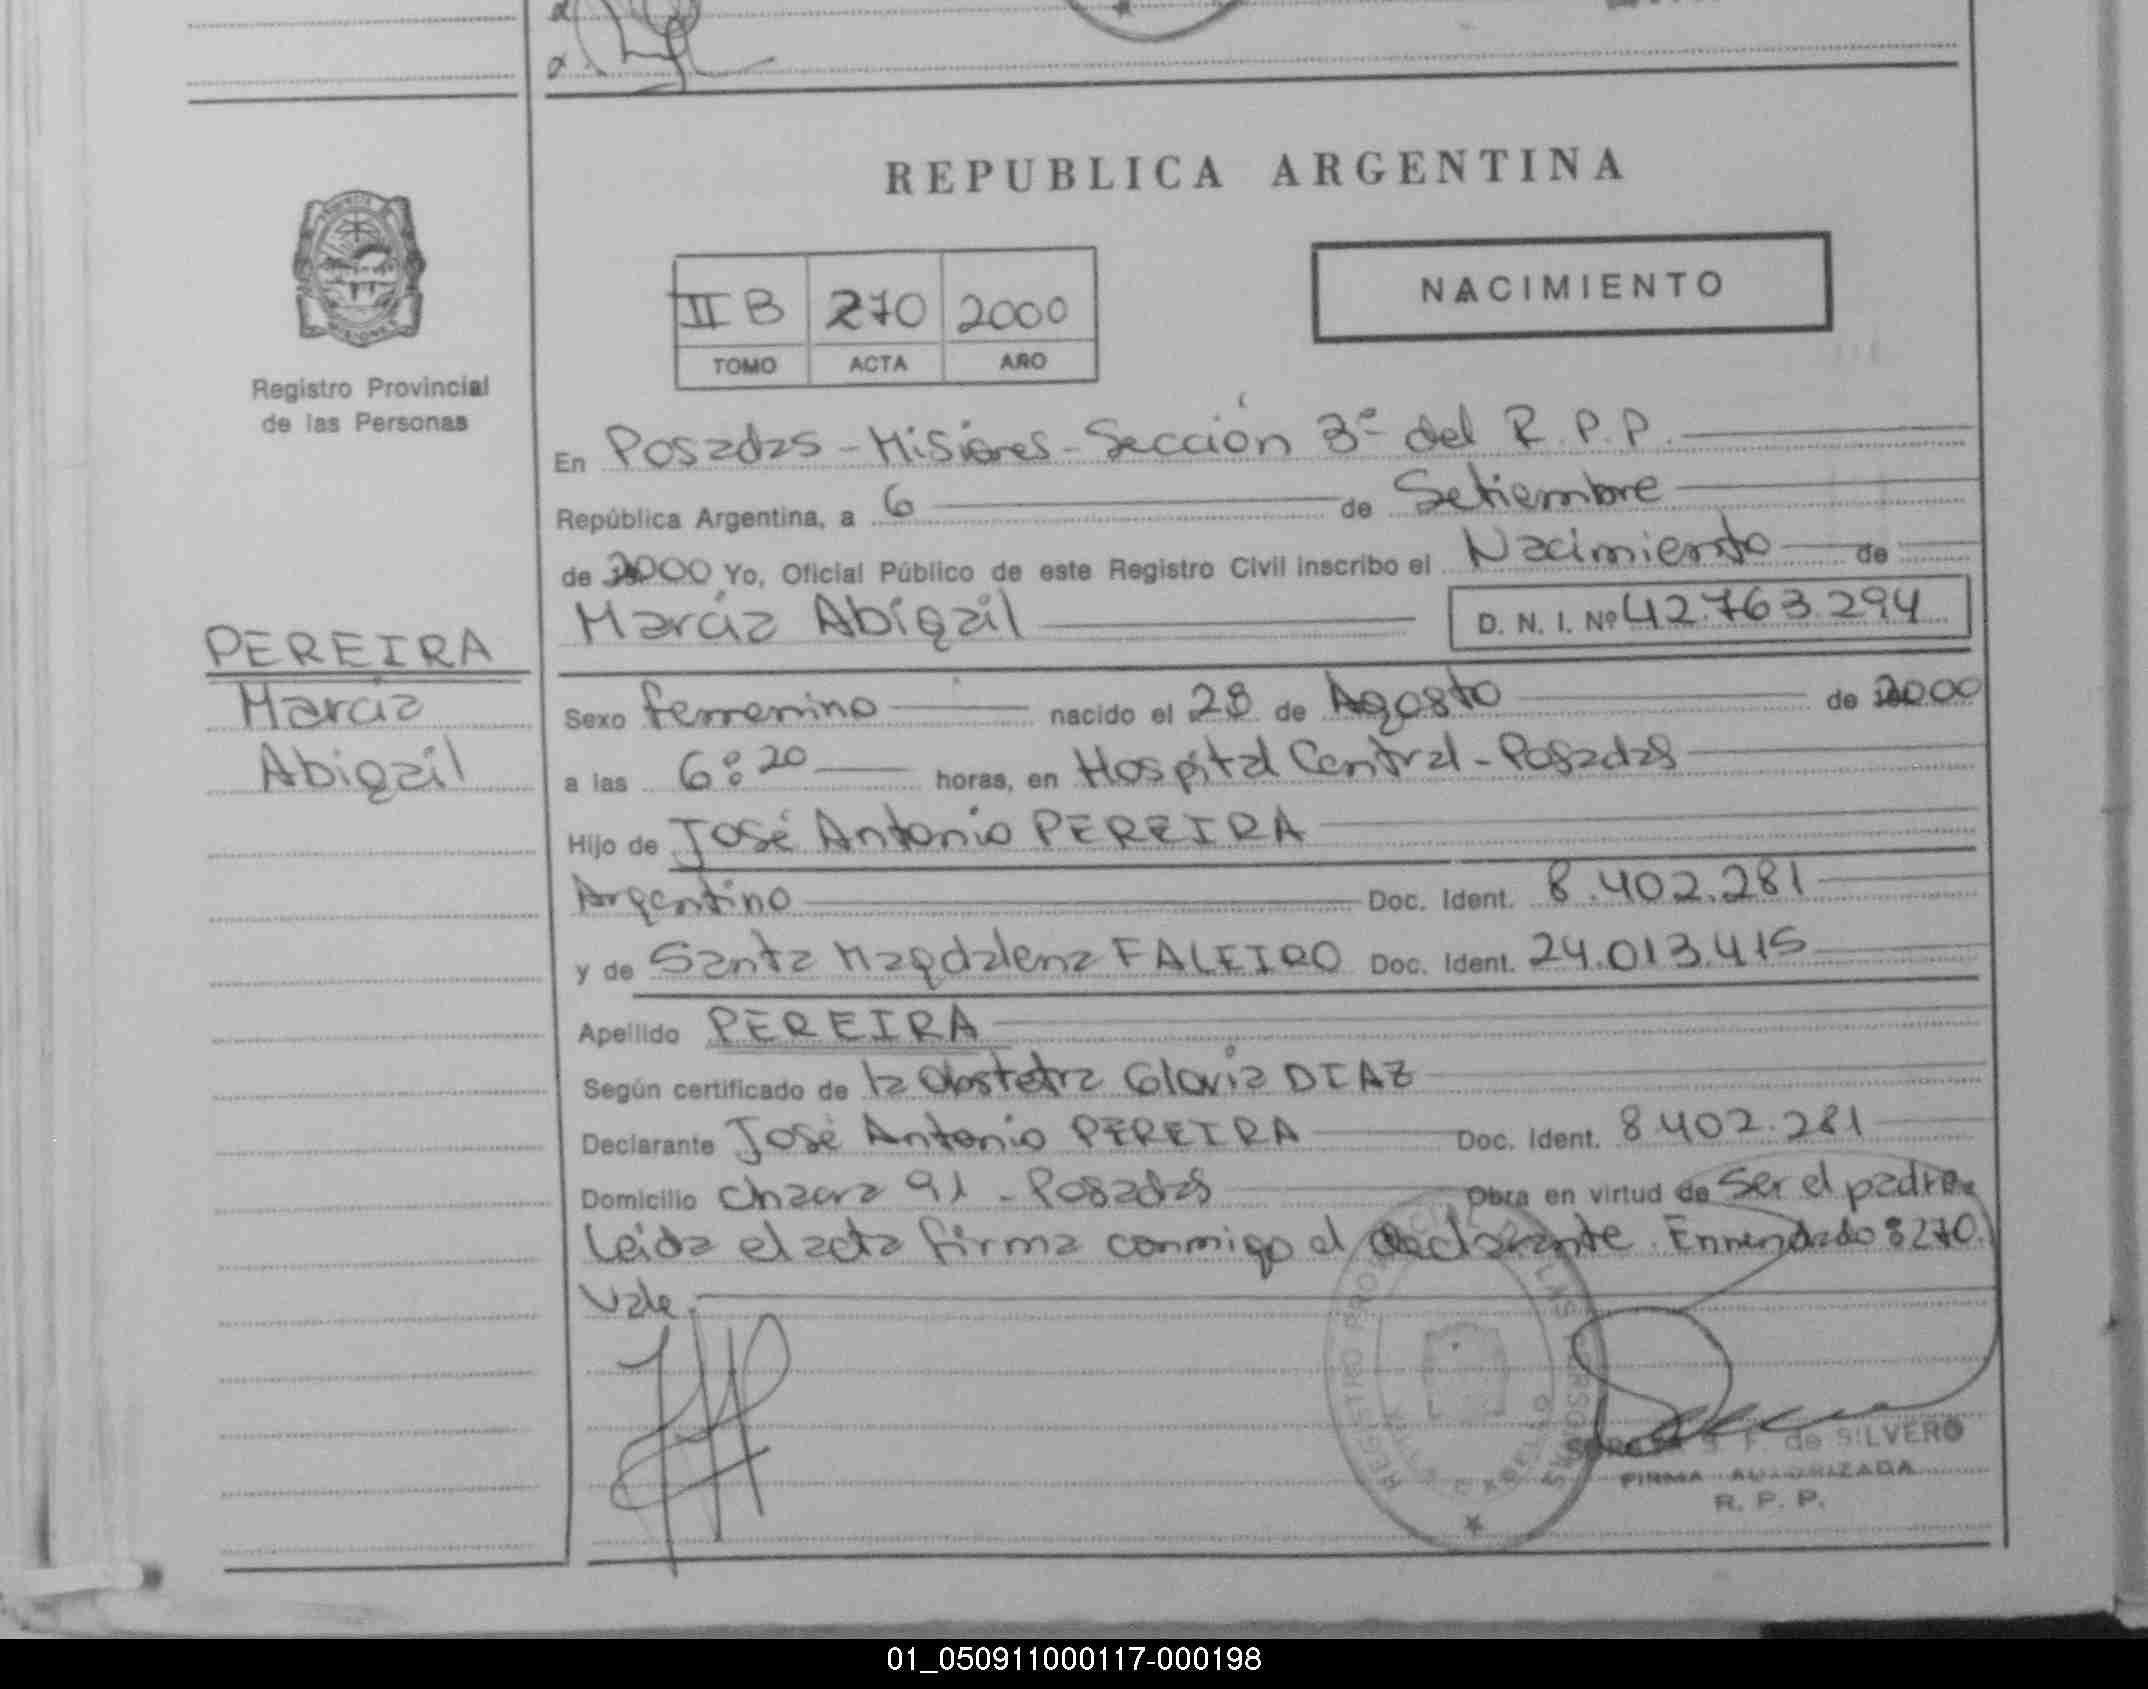 REPUBLICA ARGENTINA
NACIMIENTO
II B 270 2000
TOMO ACTA AÑO
Registro Provincial
de las Personas
En Posadas - Misiones - Sección 3ª del R.P.P.
República Argentina, a 6 de Setiembre
de 2000 Yo, Oficial Público de este Registro Civil inscribo el Nacimiento de
Marcia Abigail D. N. I. Nº 42.763.294
PEREIRA
Marcia
Abigail
Sexo femenino nacido el 28 de Agosto de 2000
a las 6:20 horas, en Hospital Central - Posadas
Hijo de José Antonio PEREIRA
Argentino Doc. Ident. 8.402.281
y de Santa Magdalena FALEIRO Doc. Ident. 24.013.415
Apellido PEREIRA
Según certificado de la obstetra Gloria DIAZ
Declarante José Antonio PEREIRA Doc. Ident. 8.402.281
Domicilio chacra 91 - Posadas Obra en virtud de ser el padre.
Leida el acta firma conmigo el declarante. Enmendado 8270.
Vale.
REGISTRO PROVINCIAL DE LAS PERSONAS
S. F. de SILVERO
FIRMA AUTORIZADA
R. P. P.
01_050911000117-000198